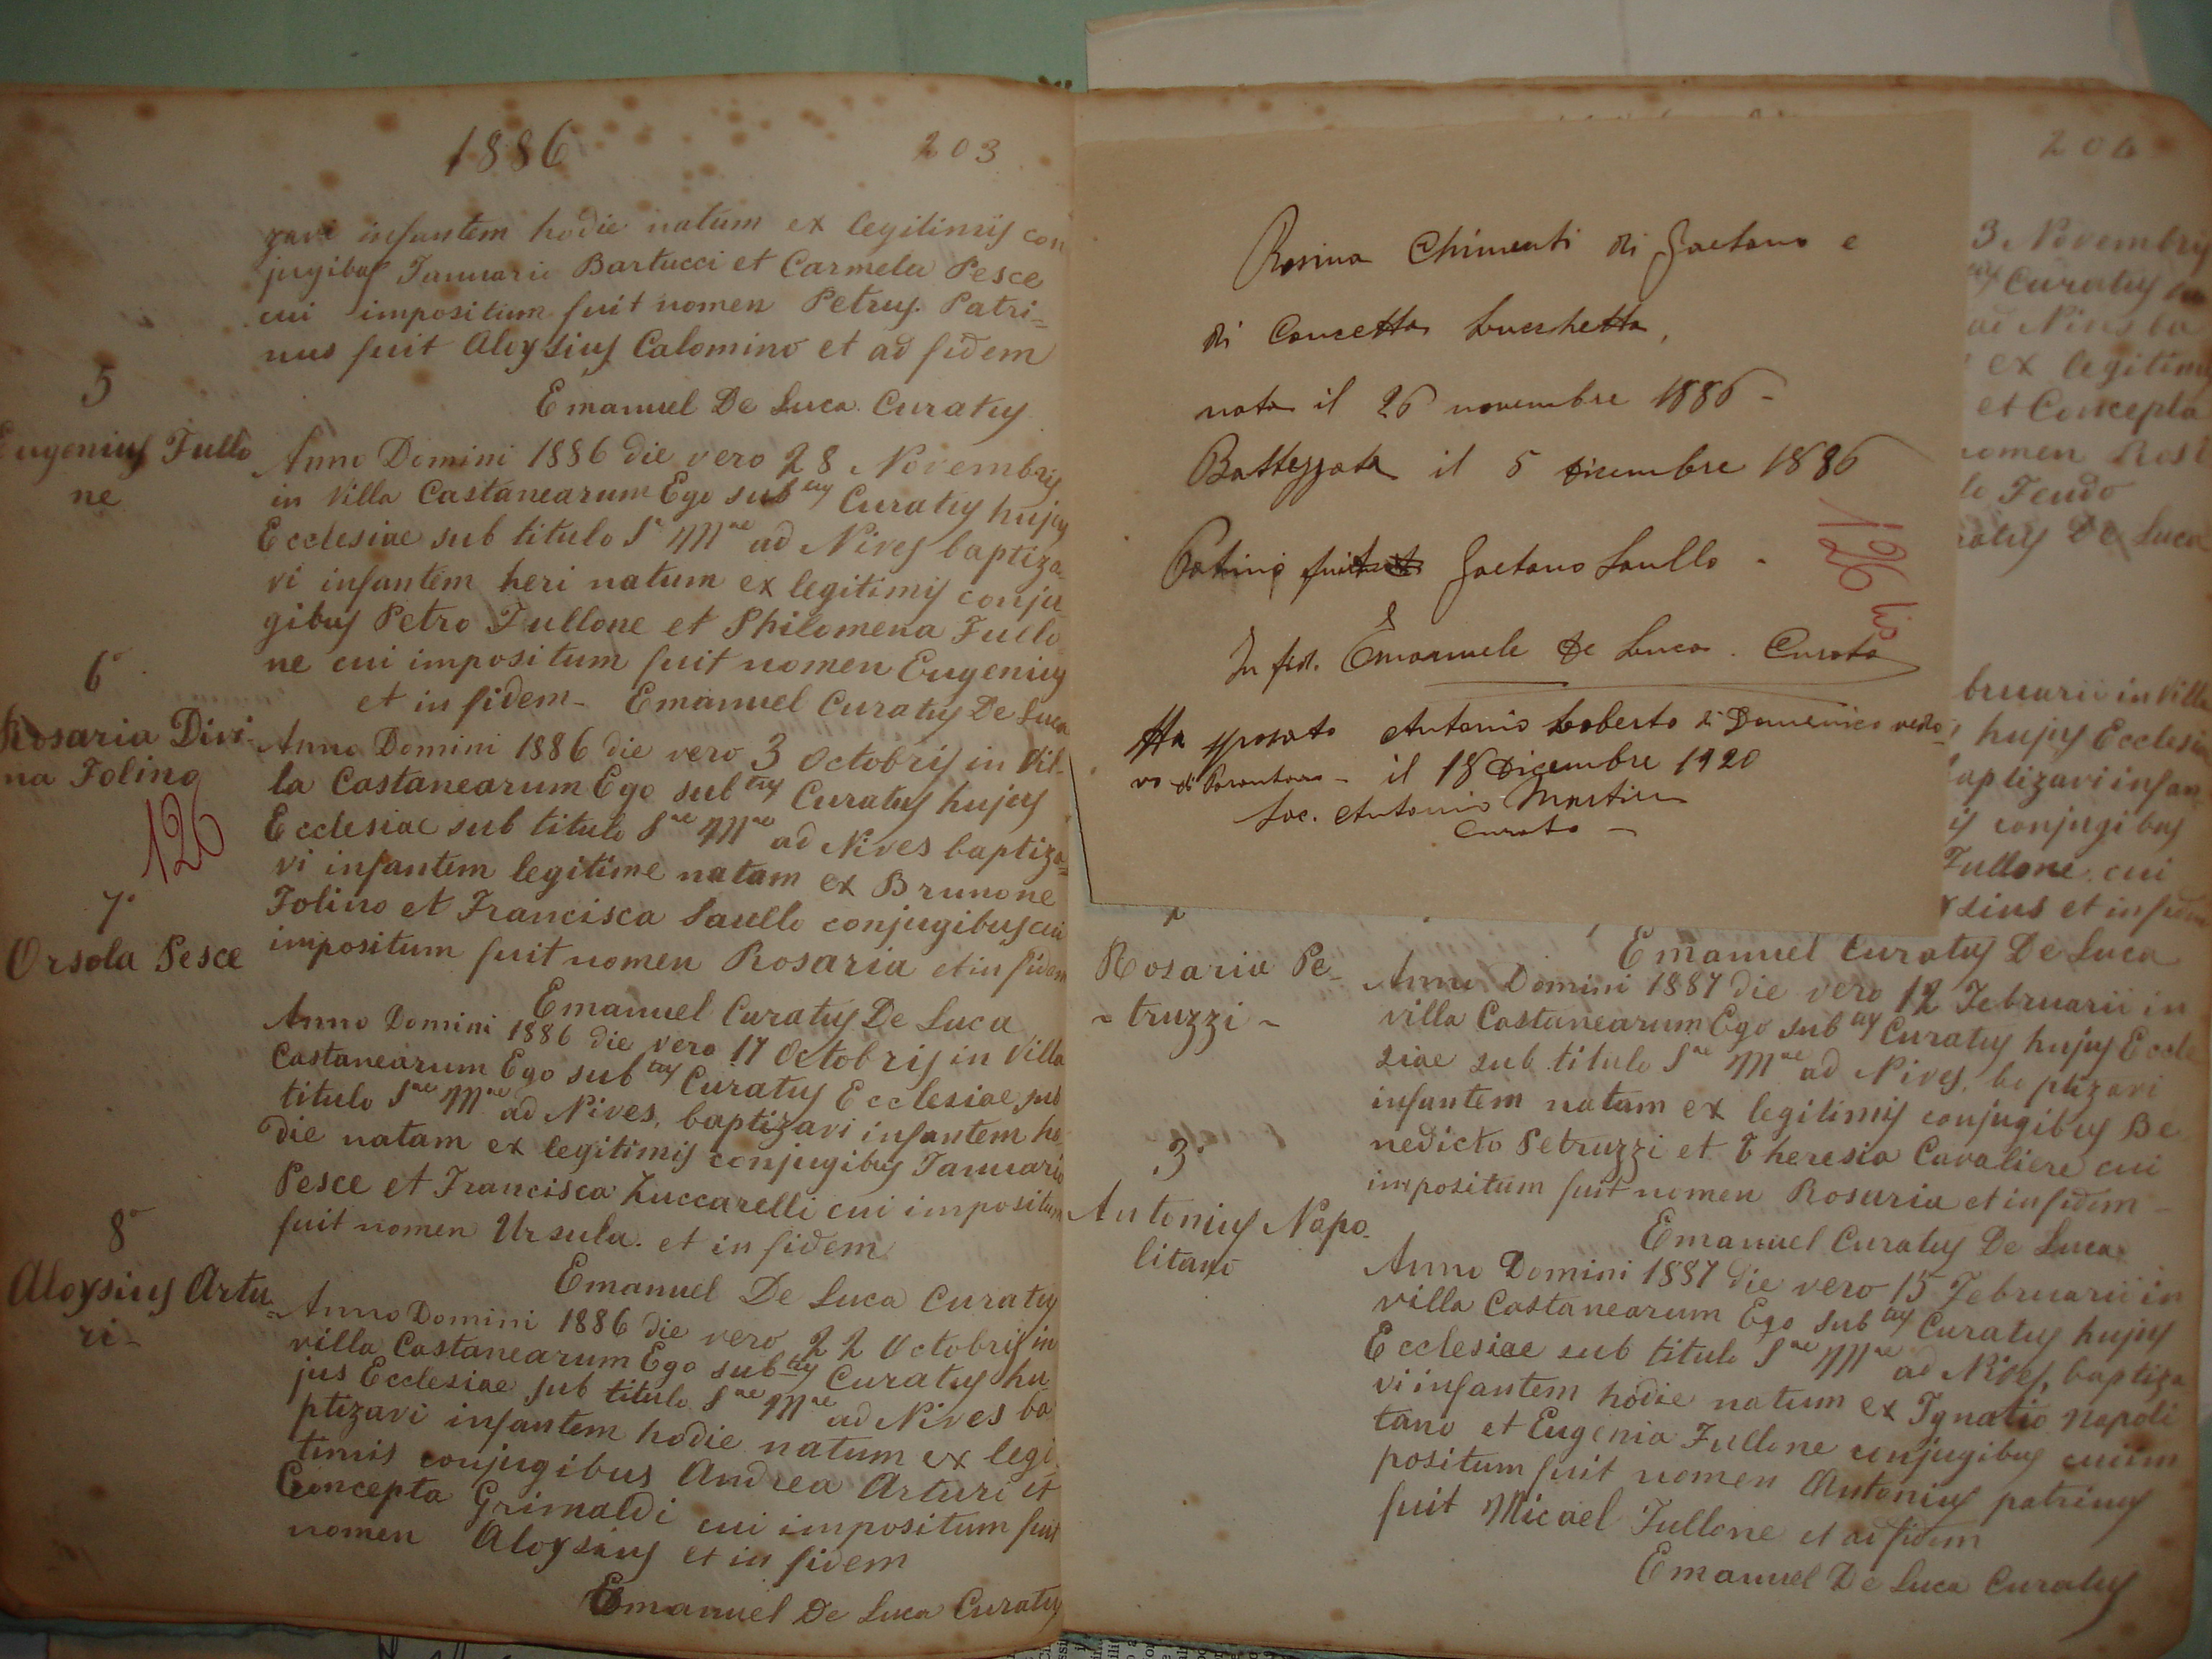 1886
203
zavi infantem hodie natum ex legitimis con
jugibus Januario Bartucci et Carmela Pesce
cui impositum fuit nomen Petrus. Patri=
nus fuit Aloysius Calomino et ad fidem
Emanuel De Luca Curatus
5
Eugenius Fullo
ne
Anno Domini 1886 die vero 28 Novembris
in Villa Castanearum Ego subtus Curatus hujus
Ecclesiae sub titulo S Mae ad Nives baptiza
vi infantem heri natum ex legitimis conju
gibus Petro Fullone et Philomena Fullo
ne cui impositum fuit nomen Eugenius
et in fidem - Emanuel Curatus De Luca
6
Rosaria Divi-
na Folino
126
Anno Domini 1886 die vero 3 Octobris in Vil-
la Castanearum Ego subtus Curatus hujus
Ecclesiae sub titulo Sae Mae ad Nives baptiza=
vi infantem legitime natam ex Brunone
Folino et Francisca Saullo conjugibus cui
impositum fuit nomen Rosaria et in fidem
Emanuel Curatus De Luca
7
Orsola Pesce
Anno Domini 1886 die vero 17 Octobris in Villa
Castanearum Ego subtus Curatus Ecclesiae sub
titulo Sae Mae ad Nives, baptizavi infantem ho
die natam ex legitimis conjugibus Januario
Pesce et Francisca Zuccarelli cui impositum
fuit nomen Ursula. et in fidem
Emanuel De Luca Curatus
8
Aloysius Artu=
ri-
Anno Domini 1886 die vero 22 Octobris in
villa Castanearum Ego subtus Curatus hu
jus Ecclesiae sub titulo Sae Mae ad Nives ba
ptizavi infantem hodie natum ex legi
timis conjugibus Andrea Arturi et
Concepta Grimaldi cui impositum fuit
nomen Aloysius et in fidem
Emanuel De Luca Curatus
Rosina Chimenti di Gaetano e
di Concetta Lucchetta,
nata il 26 novembre 1886 -
Battezzata il 5 dicembre 1886
Patrino fuit Gaetano Saullo -
In fid. Emanuele De Luca. Curato
126 bis
Ha sposato Antonio Loberto di Domenico vedo-
vo di - il 18 Dicembre 1920
Sac. Antonio
Curato -
3 Novembris
Curatus
ad Nives ba
ex legitimis
et Concepta
nomen Rosi
Feudo
Curatus De Luca
bruarii in Villa
hujus Ecclesiae
baptizavi infan
is conjugibus
Fullone cui
sius et in fidem
Emanuel Curatus De Luca
Rosaria Pe-
- truzzi -
Anno Domini 1887 die vero 12 Februarii in
villa Castanearum Ego subtus Curatus hujus Eccle
siae sub titulo Sae Mae ad Nives, baptizavi
infantem natam ex legitimis conjugibus Be
nedicto Petruzzi et Theresia Cavaliere cui
impositum fuit nomen Rosaria et in fidem -
Emanuel Curatus De Luca
3
Antonius Napo-
litano
Anno Domini 1887 die vero 15 Februarii in
villa Castanearum Ego subtus Curatus hujus
Ecclesiae sub titulo Sae Mae ad Nives, baptiza
vi infantem hodie natum ex Ignatio Napoli
tano et Eugenia Fullone conjugibus cui im
positum fuit nomen Antonius patrinus
fuit Micael Fullone et ad fidem
Emanuel De Luca Curatus